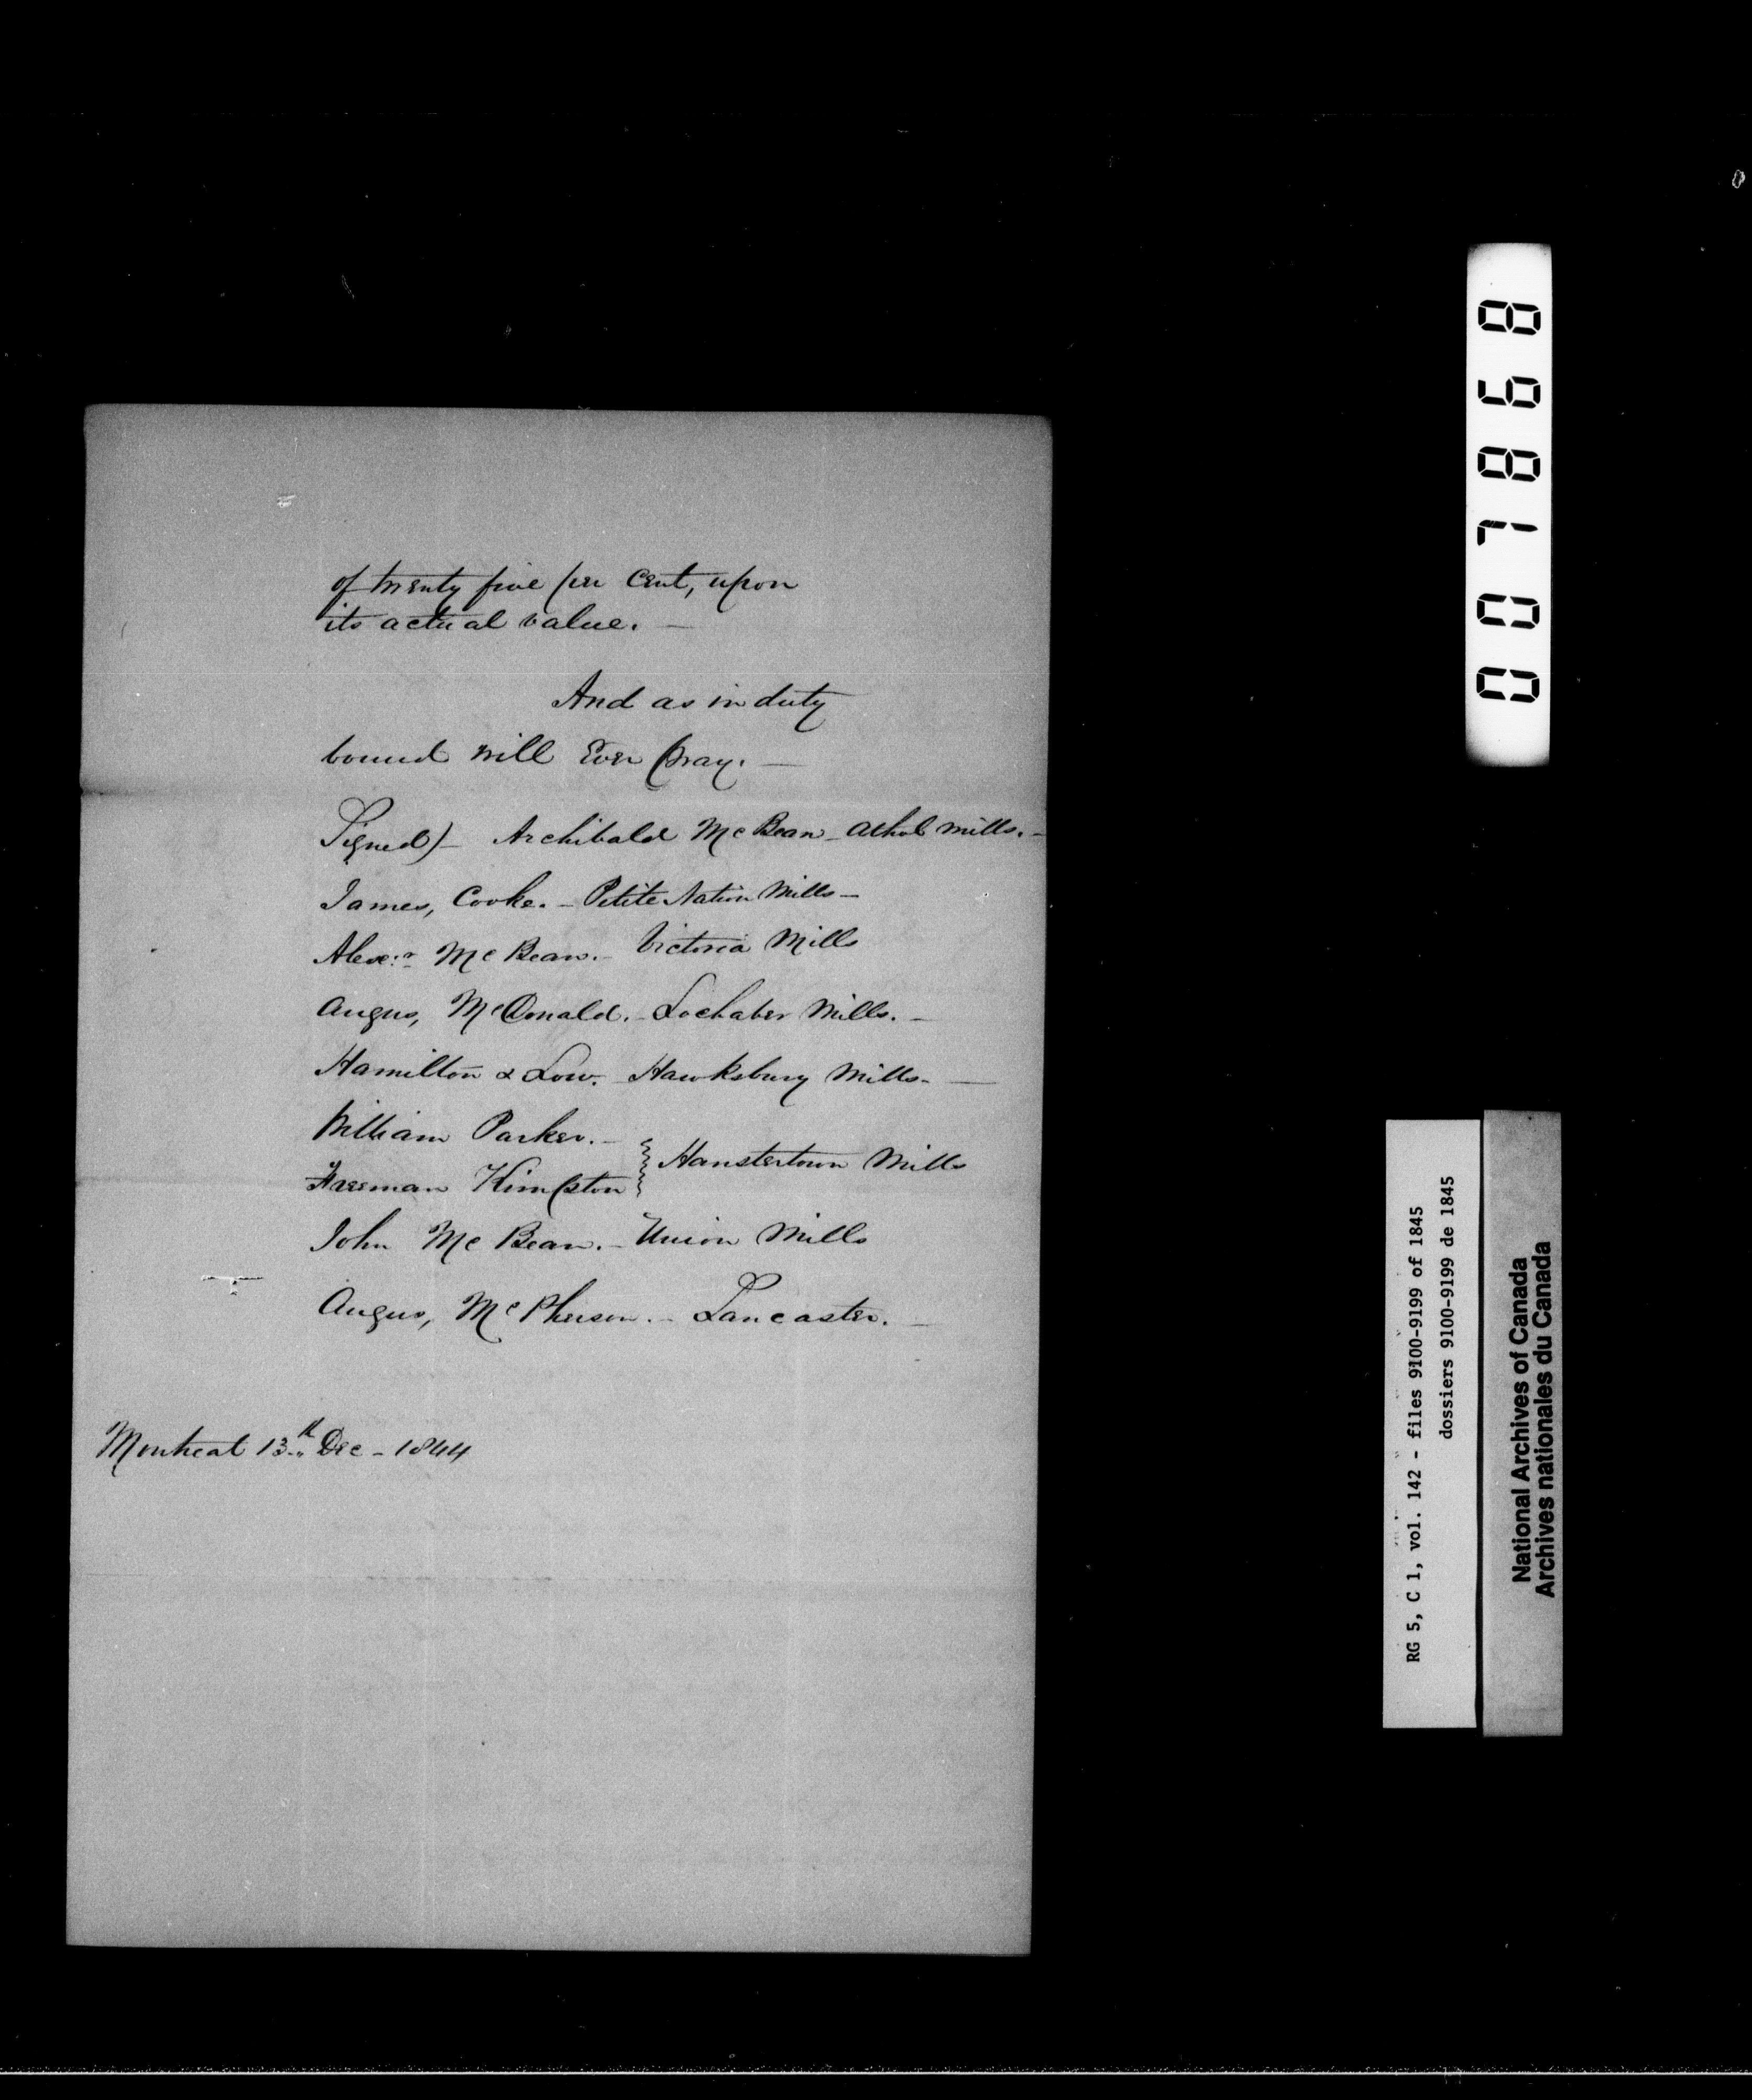 of twenty five per Cent, upon
its actual value. —
And as in duty
bound will Ever pray. —
Signed) — Archibald McBean — Athol Mills. —
James, Cooke. — Petite Nation Mills —
Alexr. McBean. — Victoria Mills
Angus, McDonald. — Lochaber Mills. —
Hamilton & Low. — Hawksbury Mills. —
William Parker. —
Hanstertown Mills
Freeman Kimpton
John McBean. — Union Mills
Angus, McPherson. — Lancaster. —
Montreal 13th Dec — 1844
007868
RG 5, C 1, vol. 142 - files 9100-9199 of 1845
dossiers 9100-9199 de 1845
National Archives of Canada
Archives nationales du Canada